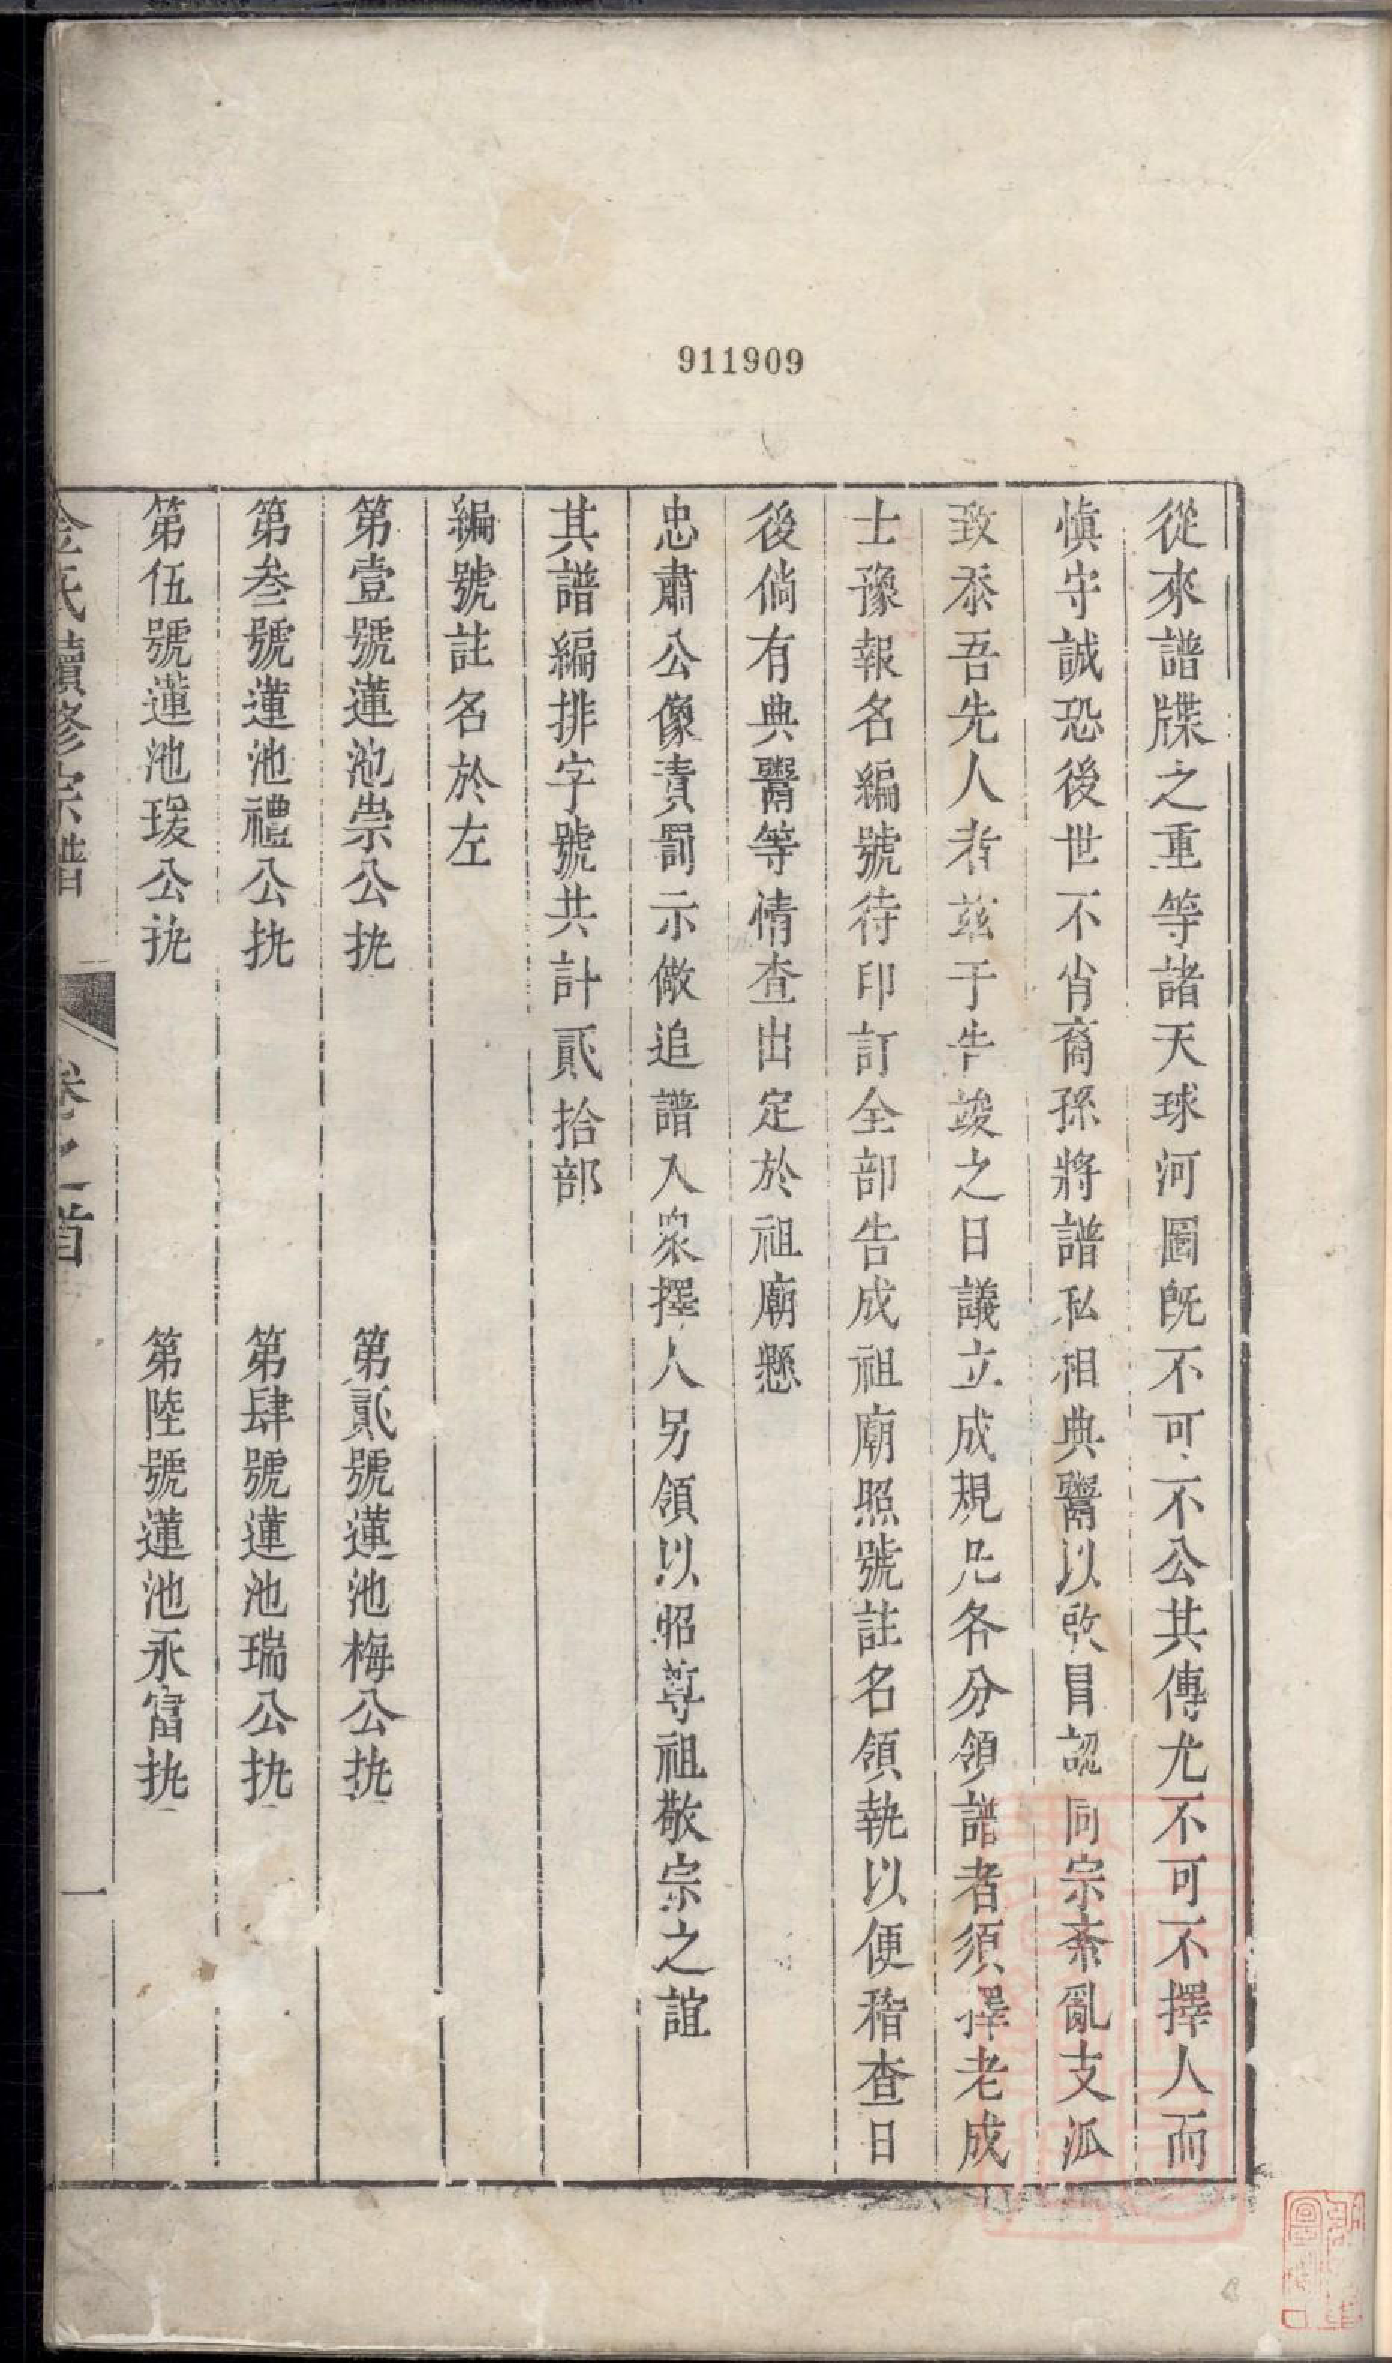 911909
從來譜牒之重等諸天球河圖既不可不公共傳尤不可不擇人而
慎守誠恐後世不肖裔孫將譜私相典鬻以啟冒認同宗紊亂支派
致忝吾先人者茲于告竣之日議立成規凡各分領譜者須擇老成
士豫報名編號待印訂全部告成祖廟照號註名領執以便稽查日
後倘有典鬻等情查出定於祖廟懸
忠肅公像責罰示儆追譜入衆擇人另領以昭尊祖敬宗之誼
其譜編排字號共計貳拾部
編號註名於左
第壹號蓮池崇公执 第貳號蓮池梅公执
第叁號蓮池禮公执 第肆號蓮池瑞公执
第伍號蓮池瑗公执 第陸號蓮池永富执
金氏續修宗譜 卷之首 一